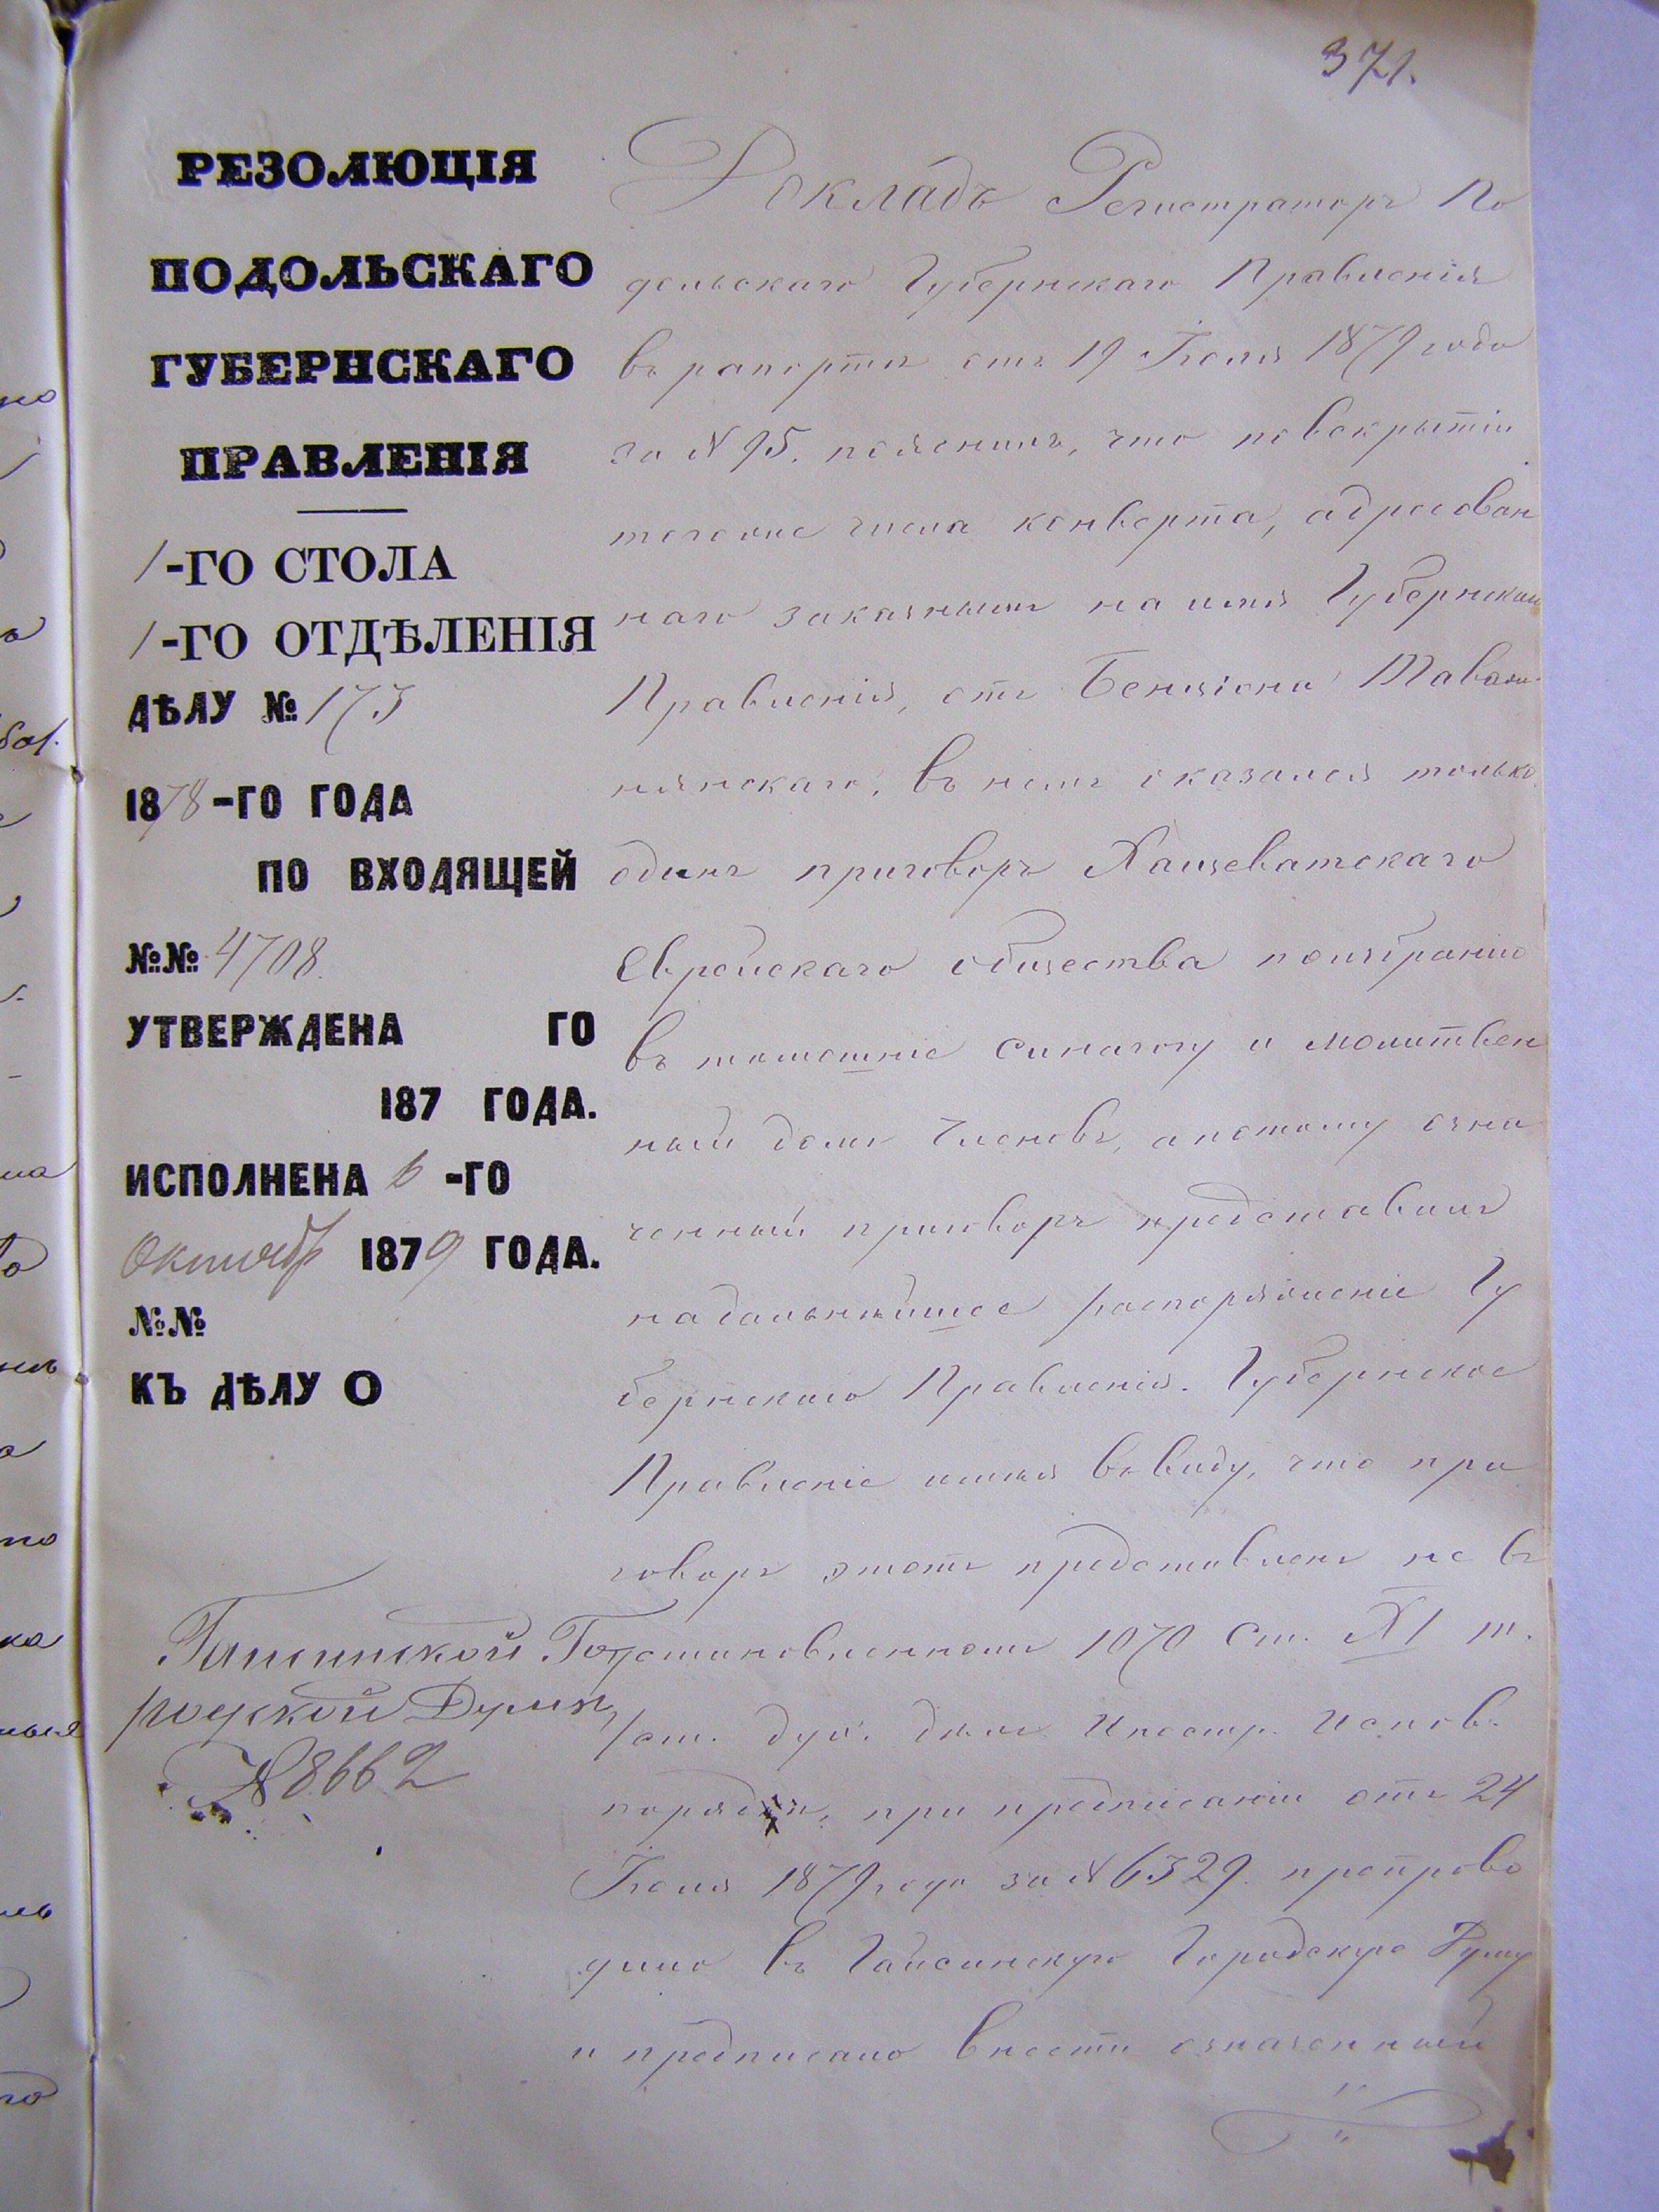 371.
РЕЗОЛЮЦІЯ
ПОДОЛЬСКАГО
ГУБЕРНСКАГО
ПРАВЛЕНІЯ
1-ГО СТОЛА
1-ГО ОТДѢЛЕНІЯ
ДѢЛУ № 173
1878-ГО ГОДА
ПО ВХОДЯЩЕЙ
№№ 4708.
УТВЕРЖДЕНА ГО
187 ГОДА.
ИСПОЛНЕНА 6-ГО
Октябр 1879 ГОДА.
№№
КЪ ДѢЛУ О
Гайсинской Го
родской Думѣ,
№ 8662
Докладъ Регистраторъ По
дольскаго Губернскаго Правленія
въ рапортѣ отъ 19 Іюля 1879 года
за № 95. пояснилъ, что по вскрытіи
числа конверта, адресован
наго на имя Губернскаго
Правленія, отъ Бенціона
въ немъ оказался только
одинъ приговоръ Хащеватскаго
Еврейскаго общества по избранію
въ синагогу и молитвен
ный домъ Членовъ, а потому озна
ченный приговоръ представилъ
на дальнѣйшее распоряженіе Гу
бернскаго Правленія. Губернское
Правленіе имѣя въ виду, что при
говоръ этотъ представленъ не въ
установленномъ 1070 Ст. XI т.
Уст. дух. дѣлъ Иностр. Исповѣ.
порядкѣ, при предписаніи отъ 24
Іюля 1879 года за № 6329. препрово
дило въ Гайсинскую Городскую Думу
и предписало внести означенный